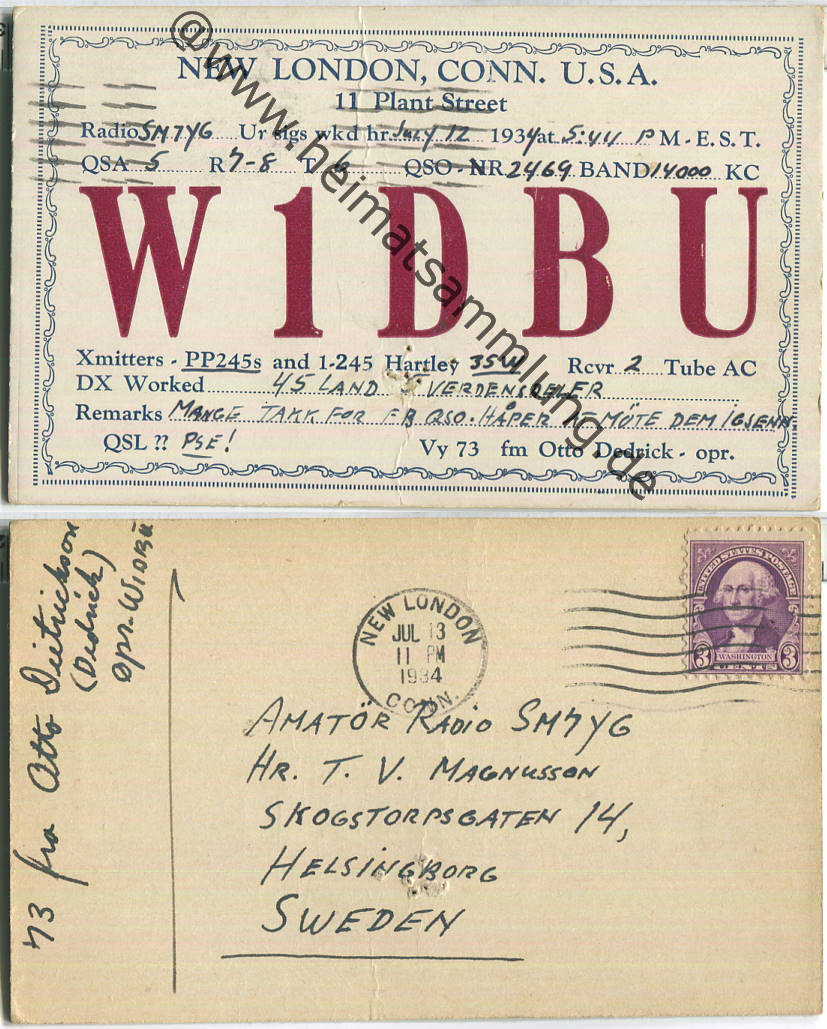 NEW LONDON, CONN. U.S.A.
11 Plant Street
Radio SM7YG Ur sigs wkd hr July 12 1934 at 5:44 P M - E.S.T.
QSA 5 R 7-8 T 6 QSO - NR 2469 BAND 14000 KC
W1DBU
Xmitters - PP245s and 1-245 Hartley 35W Rcvr 2 Tube AC
DX Worked 45 LAND VERDENSDELER
Remarks MANGE TAKK FOR FB QSO. HÅPER MÖTE DEM IGJENN.
QSL ?? PSE! Vy 73 fm Otto Dedrick - opr.
@www.heimatsammlung.de
73 fra Otto Dietrickson
(Dedrick)
opr. W1DBU
NEW LONDON
JUL 13
11 PM
1934
CONN.
UNITED STATES POSTAGE
WASHINGTON
3 CENTS 3
AMATÖR RADIO SM7YG
HR. T. V. MAGNUSSON
SKOGSTORPSGATEN 14,
HELSINGBORG
SWEDEN